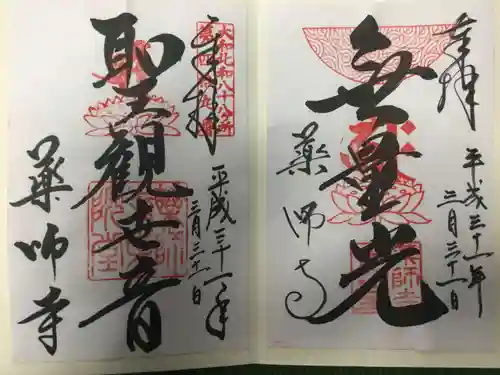 奉拝
平成三十一年
三月三十一日
無量光
薬師寺
奉拝
平成三十一年
三月三十一日
聖観世音
薬師寺